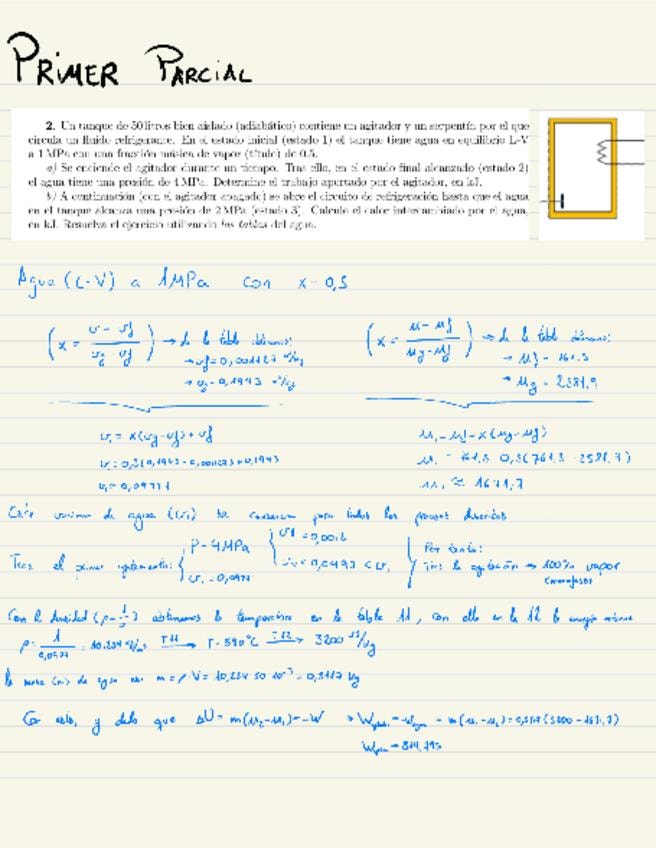 PRIMER PARCIAL
2. Un tanque de 50 litros bien aislado (adiabático) contiene un agitador y un serpentín por el que
circula un fluido refrigerante. En el estado inicial (estado 1) el tanque tiene agua en equilibrio L-V
a 1 MPa con una fracción másica de vapor (título) de 0.5.
a) Se enciende el agitador durante un tiempo. Tras ello, en el estado final alcanzado (estado 2)
el agua tiene una presión de 4 MPa. Determine el trabajo aportado por el agitador, en kJ.
b) A continuación (con el agitador apagado) se abre el circuito de refrigeración hasta que el agua
en el tanque alcanza una presión de 2 MPa (estado 3). Calcule el calor intercambiado por el agua,
en kJ. Resuelva el ejercicio utilizando las tablas del agua.
Agua (L-V) a 1MPa con x=0,5
(x = v-vf / vg-vf) → de la tabla obtenemos: (x = u-uf / ug-uf) → de la tabla obtenemos:
→ vf=0,001127 → uf = 761.5
→ vg=0,1943 → ug = 2581,9
v₁ = x(vg-vf)+vf u₁ = uf-x(ug-uf)
v₁=0,09771 u₁ ≈ 1671,7
Este volumen de agua (v₁) se conserva para todos los procesos
Tras el primer P=4MPa Por tanto:
Tras la agitación → 100% vapor
Con la densidad obtenemos la temperatura en la tabla 11, con ello en la 12 la energía interna
ρ = 1/0,0977 = 10,234 T11 → T=590°C T12 → 3200
la masa (m) de agua es: m=ρ·V= 10,234·50·10⁻³ = 0,5117 kg
Con esto, y dado que ΔU = m(u₂-u₁) = -W